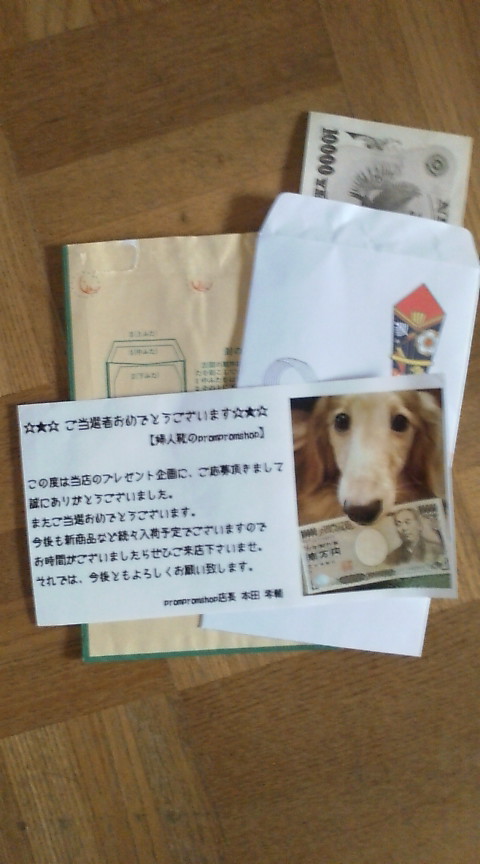 10000 YE
☆★☆ ご当選者おめでとうございます☆★☆
【婦人靴のprompromshop】
この度は当店のプレゼント企画に、ご応募頂きまして
誠にありがとうございました。
またご当選おめでとうございます。
今後も新商品など続々入荷予定でございますので
お時間がございましたらぜひご来店下さいませ。
それでは、今後ともよろしくお願い致します。
prompromshop店長 本田
10000
壱万円